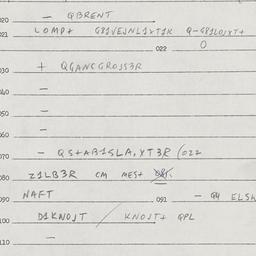 020 — QBRENT
021 LOMP+ G81VEJNL1XT1R Q-G81LOJXT+
022 O
030 + QGANCGROJS3R
040 —
050 —
060 —
070 — QS+AB1SLA,XT3R (022
080 Z1LB3R CM MES+
090 NAFT 091 — Q4 ELSK
100 D1KNOJT / KNOJT+ QPL
110 —